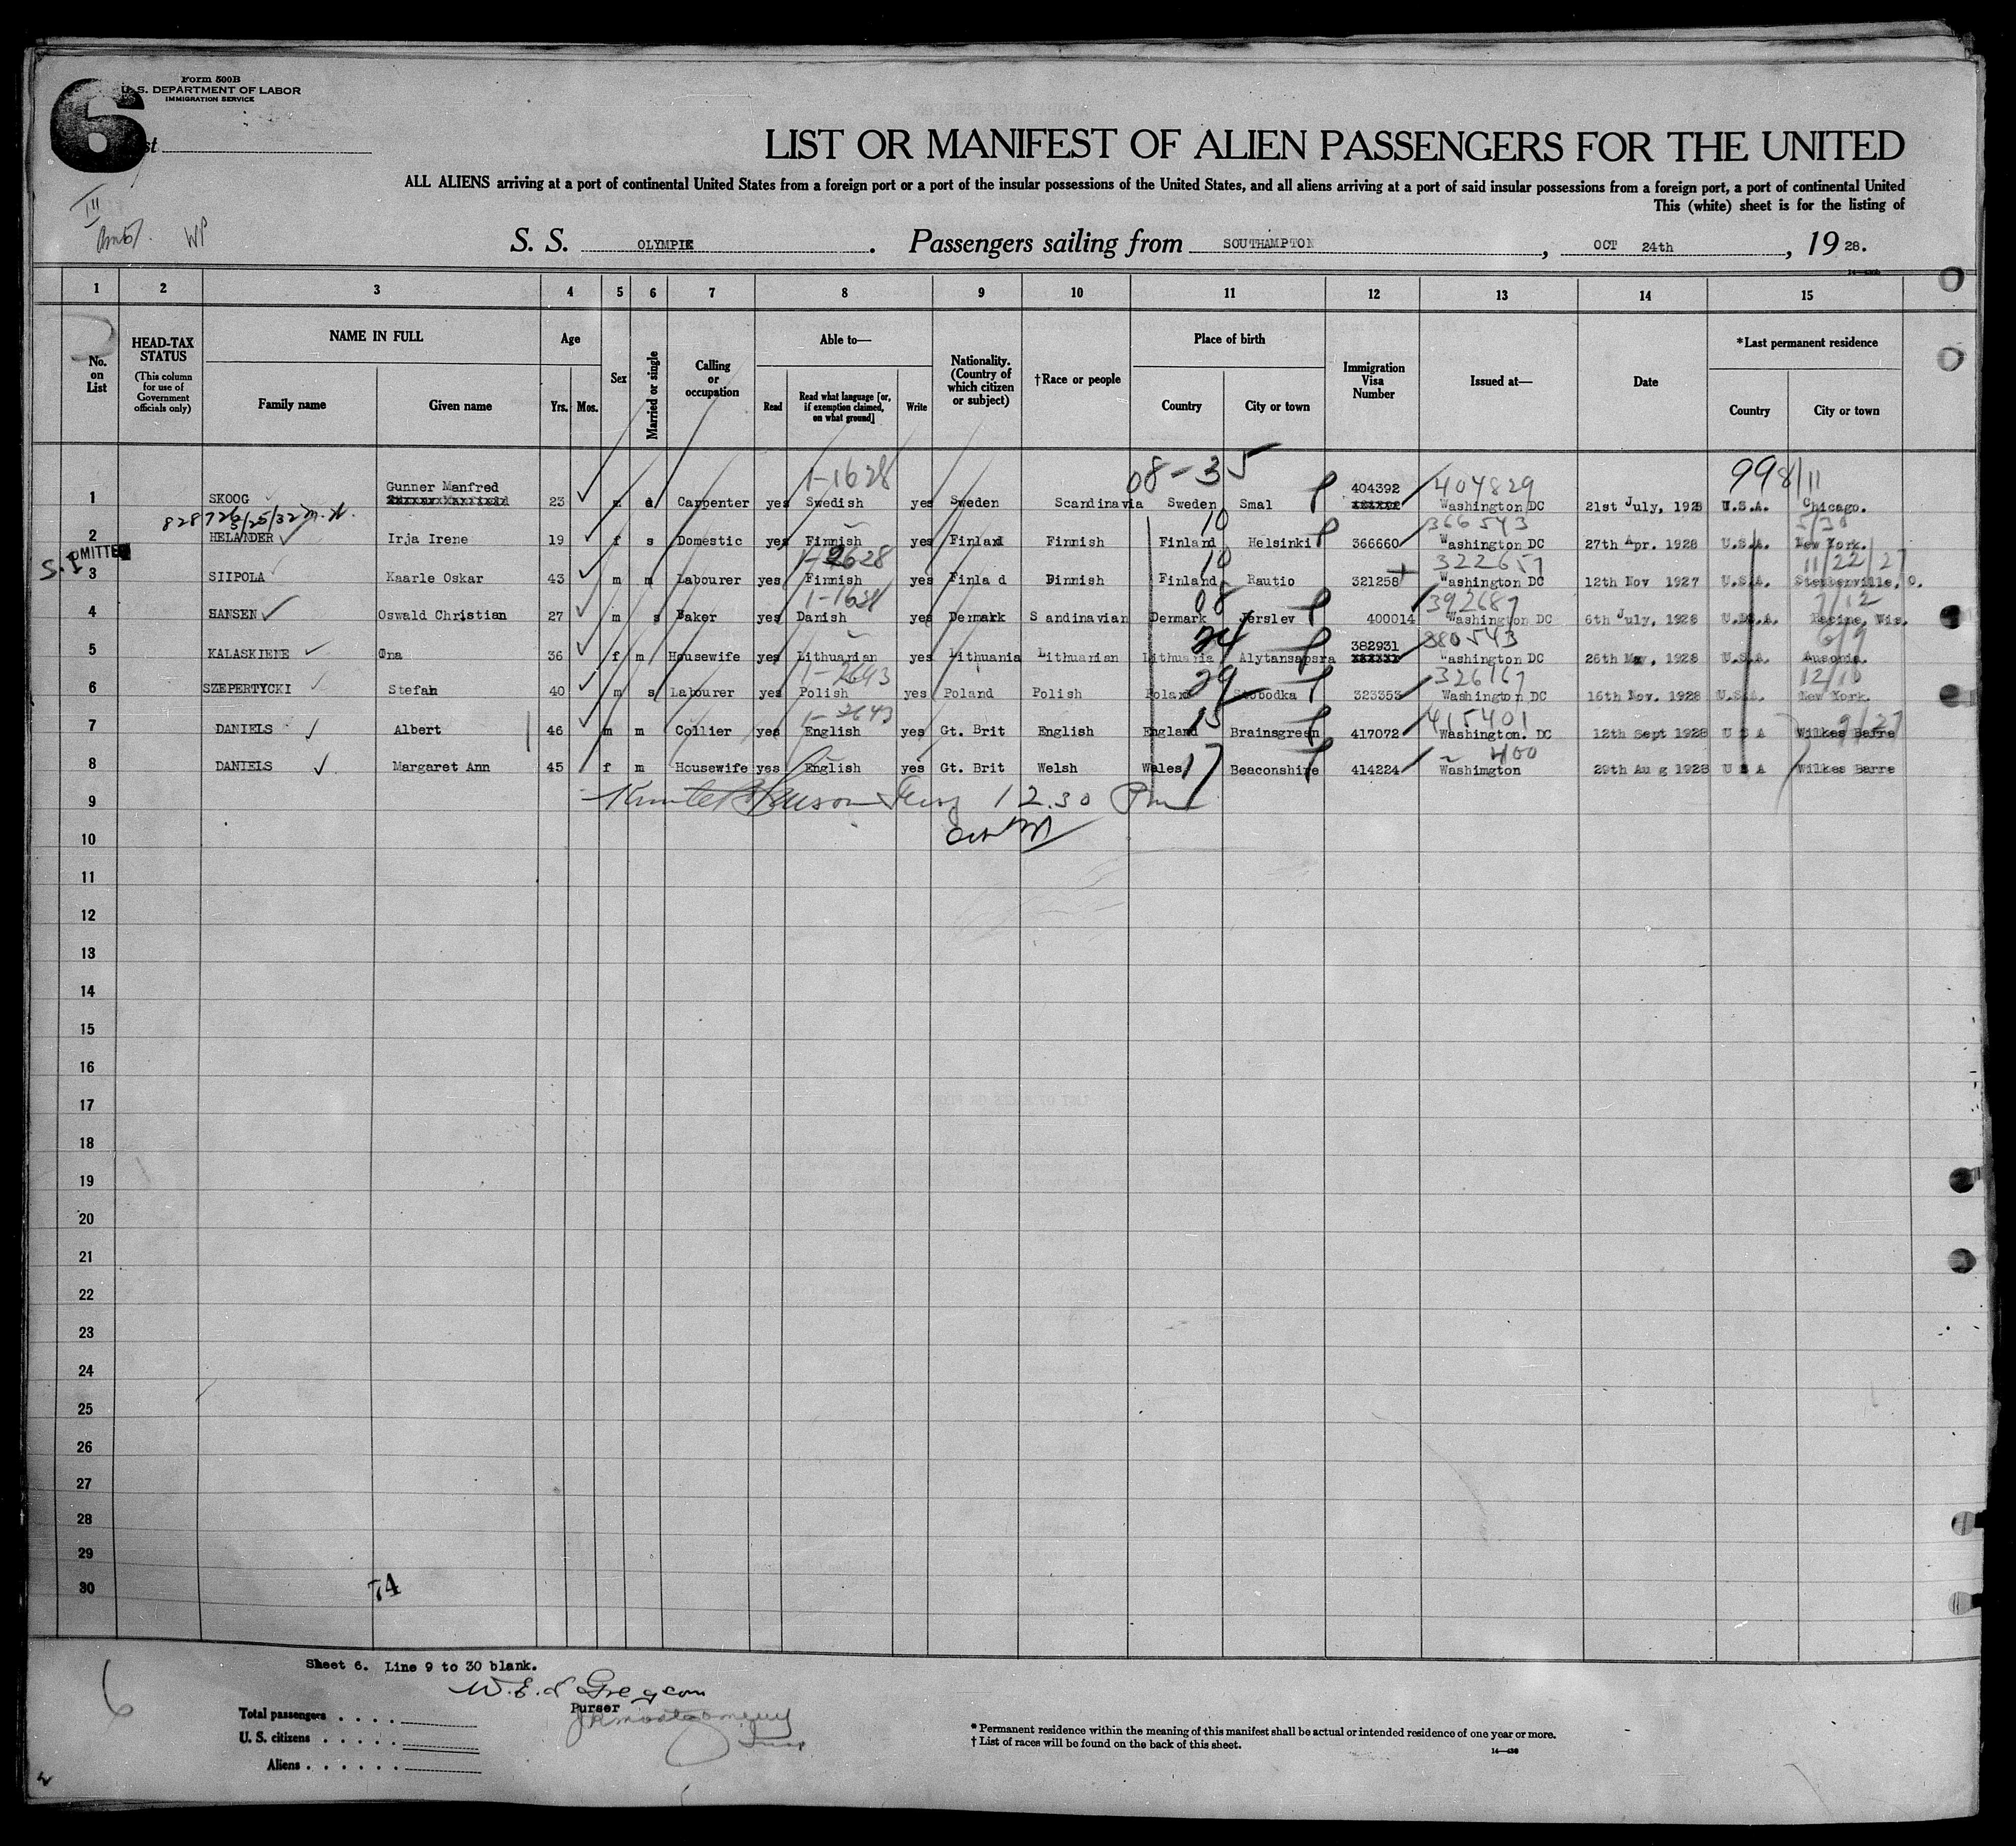 6
Form 500B
U. S. DEPARTMENT OF LABOR
IMMIGRATION SERVICE
LIST OR MANIFEST OF ALIEN PASSENGERS FOR THE UNITED
ALL ALIENS arriving at a port of continental United States from a foreign port or a port of the insular possessions of the United States, and all aliens arriving at a port of said insular possessions from a foreign port, a port of continental United
This (white) sheet is for the listing of
III
WP
S. S. OLYMPIC. Passengers sailing from SOUTHAMPTON, OCT 24th, 1928.
1 2 3 4 5 6 7 8 9 10 11 12 13 14 15
No. on List
HEAD-TAX STATUS (This column for use of Government officials only)
NAME IN FULL Family name Given name
Age Yrs. Mos.
Sex
Married or single
Calling or occupation
Able to— Read Read what language [or, if exemption claimed, on what ground] Write
Nationality. (Country of which citizen or subject)
†Race or people
Place of birth Country City or town
Immigration Visa Number
Issued at—
Date
*Last permanent residence Country City or town
1-1628 08-35 404829 998/11
1 SKOOG Gunner Manfred 23 m Carpenter yes Swedish yes Sweden Scandinavia Sweden Smal 404392 Washington DC 21st July, 1928 U.S.A. Chicago.
828726 3/25/32 10 366543 5/30
2 HELANDER Irja Irene 19 f s Domestic yes Finnish yes Finland Finnish Finland Helsinki 366660 Washington DC 27th Apr. 1928 U.S.A. New York.
S. I. 1-2628 10 322657 11/22/27
3 SIIPOLA Kaarle Oskar 43 m m Labourer yes Finnish yes Finla d Dinnish Finland Rautio 321258 Washington DC 12th Nov 1927 U.S.A. Steubenville, O.
08 392687 7/12
4 HANSEN Oswald Christian 27 m s Baker yes Danish yes Denmark S andinavian Denmark Jerslev 400014 Washington DC 6th July, 1928 U.S.A. Racine, Wis.
24 380543 6/9
5 KALASKIENE Ona 36 f m Housewife yes Lithuanian yes Lithuania Lithuanian Lithuania Alytansapsra 382931 Washington DC 26th May, 1928 U.S.A. Ansonia.
1-2643 29 326167 12/10
6 SZEPERTYCKI Stefan 40 m s Labourer yes Polish yes Poland Polish Poland Stobodka 323353 Washington DC 16th Nov. 1928 U.S.A. New York.
1-2643 15 415401 9/27
7 DANIELS Albert 46 m m Collier yes English yes Gt. Brit English England Brainsgreen 417072 Washington. DC 12th Sept 1928 U S A Wilkes Barre
17 400
8 DANIELS Margaret Ann 45 f m Housewife yes English yes Gt. Brit Welsh Wales Beaconshire 414224 Washimgton 29th Au g 1928 U S A Wilkes Barre
9 12.30 Pm
10
11
12
13
14
15
16
17
18
19
20
21
22
23
24
25
26
27
28
29
30
74
Sheet 6. Line 9 to 30 blank.
6
Purser
Total passengers
U. S. citizens
Aliens
* Permanent residence within the meaning of this manifest shall be actual or intended residence of one year or more.
† List of races will be found on the back of this sheet.